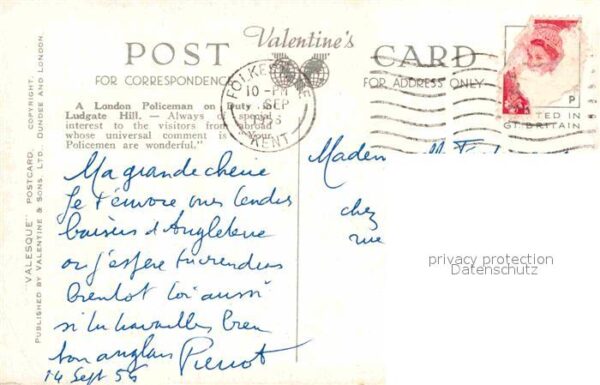 POST Valentine's CARD
FOR CORRESPONDENCE FOR ADDRESS ONLY
FOLKESTONE
10 - PM
SEP
KENT
P
TED IN
GT. BRITAIN
A London Policeman on Duty
Ludgate Hill. — Always of special
interest to the visitors from abroad
whose universal comment is "Your
Policemen are wonderful."
VALESQUE" POSTCARD. COPYRIGHT.
PUBLISHED BY VALENTINE & SONS, LTD. DUNDEE AND LONDON.
Ma grande chérie
Je t'envoie mes tendres
baisers d'Angleterre
où j'espère tu viendras
bientôt toi aussi
si tu travailles bien
ton anglais Pierrot
14 Sept 56
Madem
chez
rue
privacy protection
Datenschutz